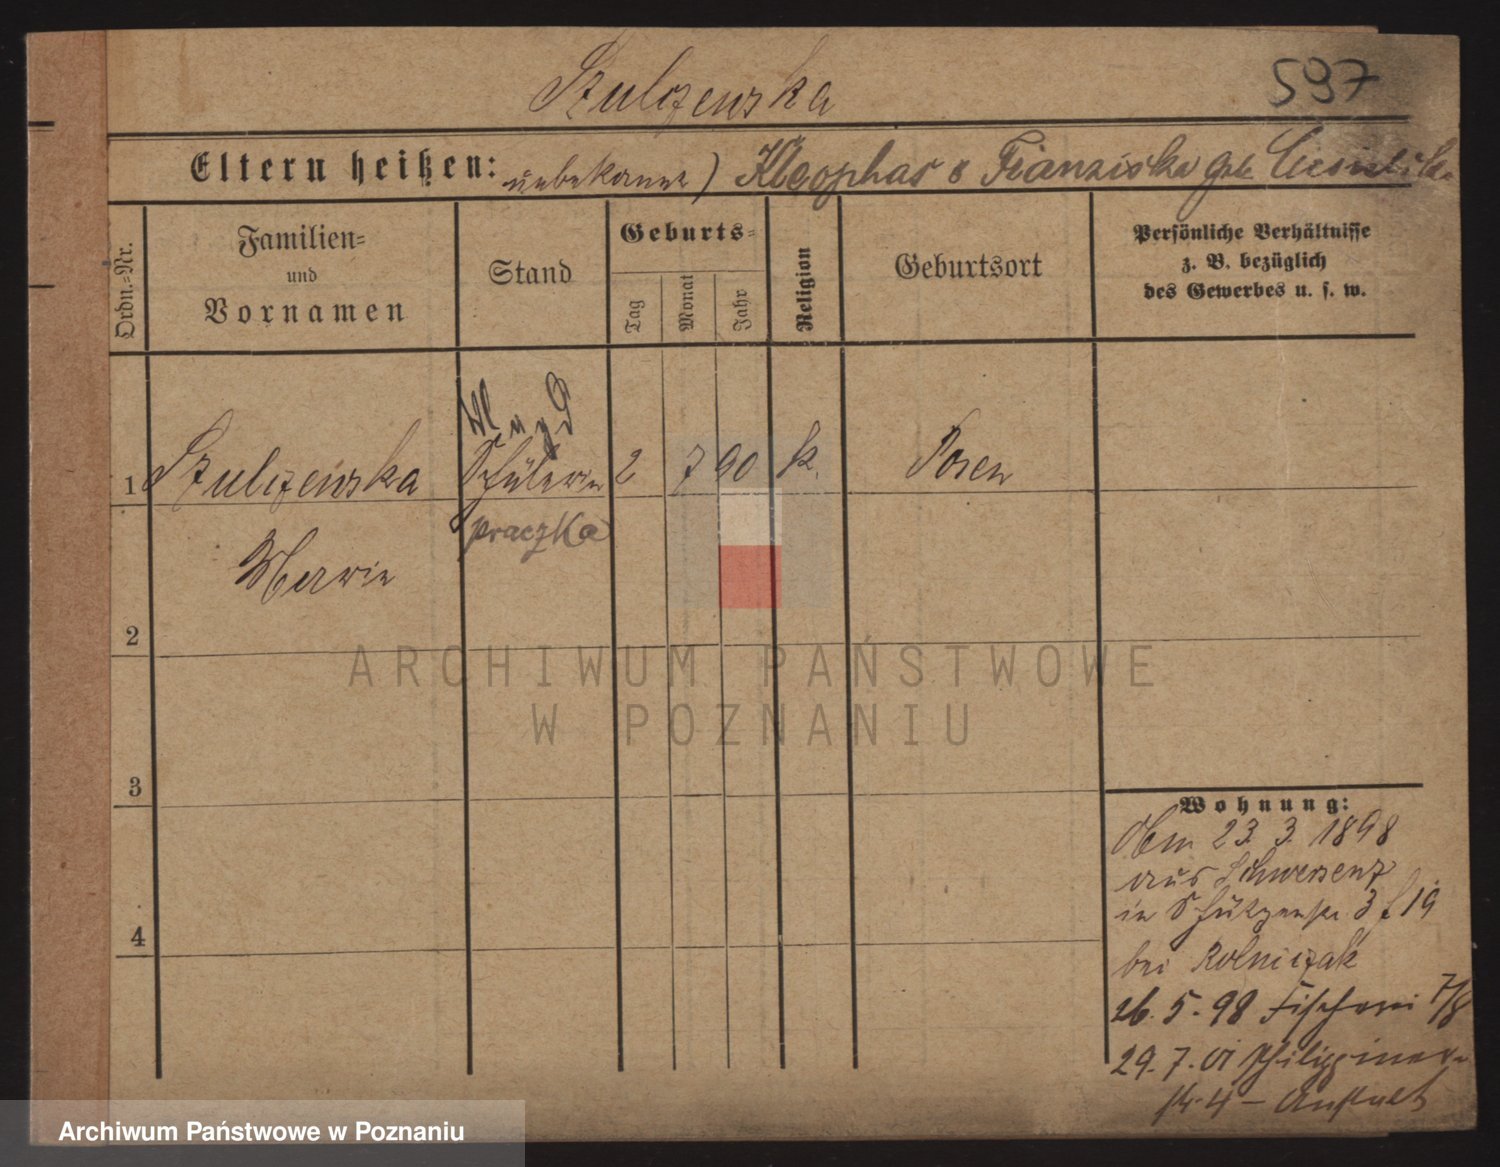 Szulczewska
597
Eltern heißen: unbekannt) Kleophas & Franziska geb.
Ordn.=Nr.
Familien=
und
Vornamen
Stand
Geburts=
Tag
Monat
Jahr
Religion
Geburtsort
Persönliche Verhältnisse
z. B. bezüglich
des Gewerbes u. s. w.
1 Szulczewska Schülerin 2 7 90 k. Posen
praczka
2
3
4
Wohnung:
23. 3. 1898
aus Schwersenz
in Schützenstr. 3 f 19
bei Rolniczak
26. 5. 98 Fischerei 7/8
29. 7. 01
str. 4 – Anstalt
ARCHIWUM PAŃSTWOWE
W POZNANIU
Archiwum Państwowe w Poznaniu